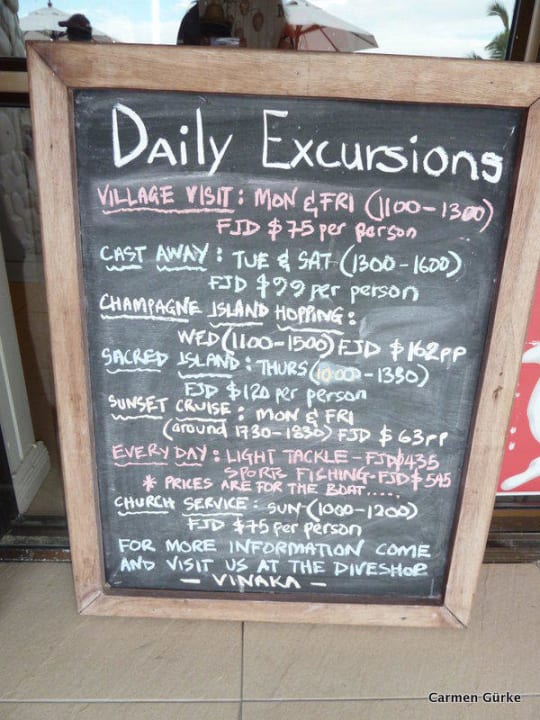 Daily Excursions
VILLAGE VISIT: MON & FRI (1100-1300)
FJD $75 per person
CAST AWAY: TUE & SAT (1300-1600)
FJD $99 per person
CHAMPAGNE ISLAND HOPPING:
WED (1100-1500) FJD $162pp
SACRED ISLAND: THURS (1000-1330)
FJD $120 per person
SUNSET CRUISE: MON & FRI
(around 1730-1830) FJD $63pp
EVERY DAY: LIGHT TACKLE - FJD$435
SPORT FISHING-FJD$545
* PRICES ARE FOR THE BOAT.....
CHURCH SERVICE: SUN (1000-1200)
FJD $75 per person
FOR MORE INFORMATION COME
AND VISIT US AT THE DIVESHOP
- VINAKA -
Carmen Gürke